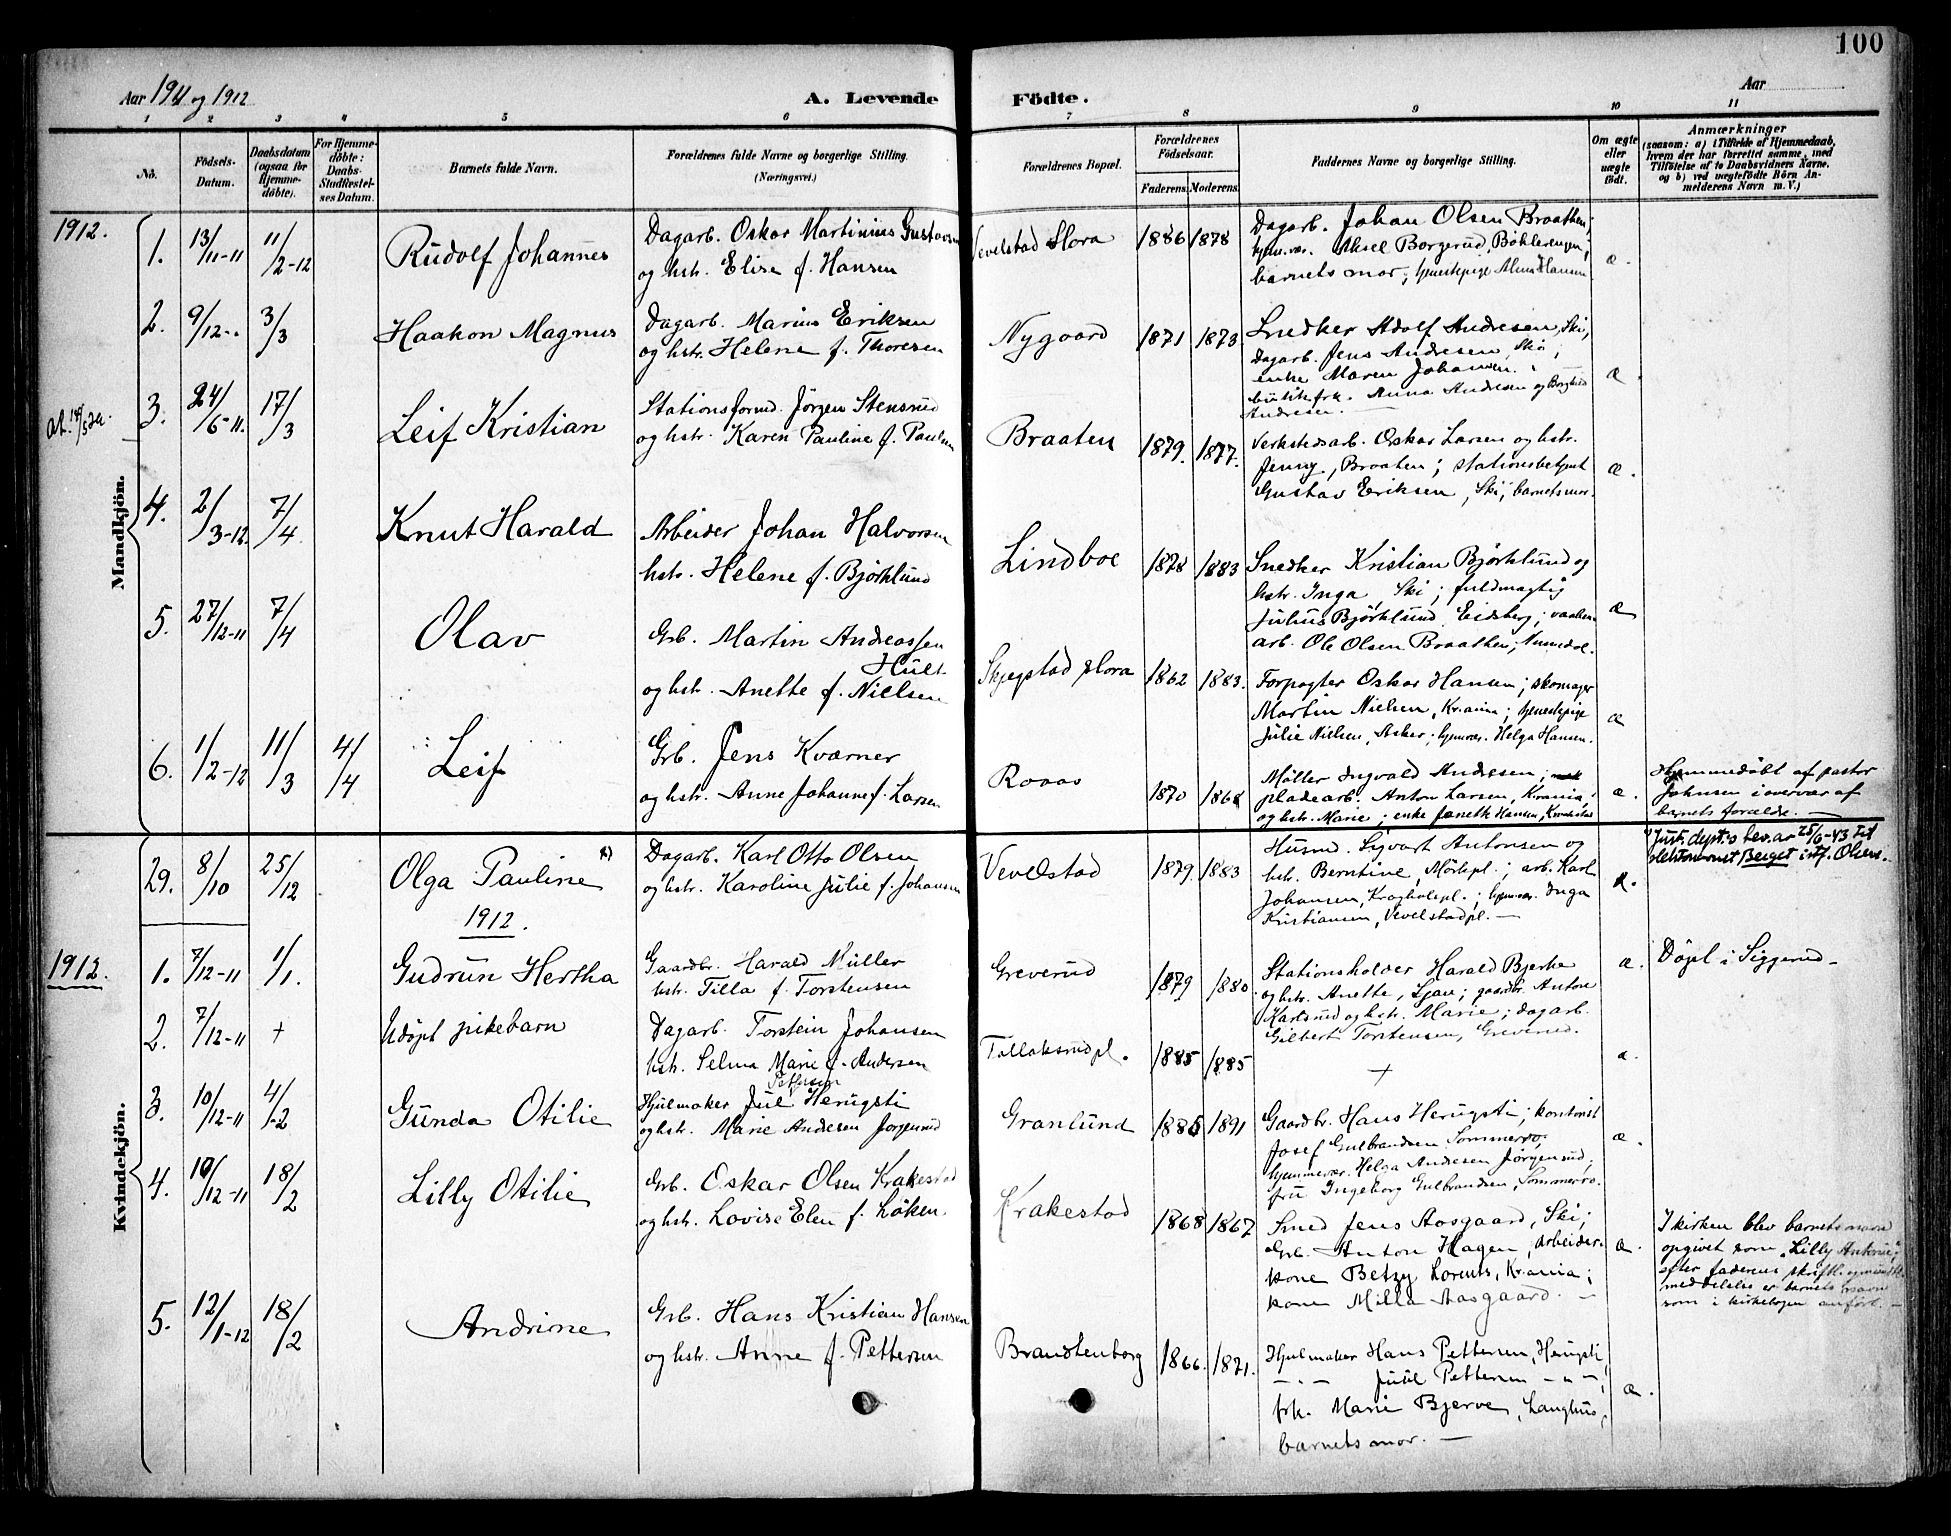 100
Aar 1911 og 1912
A. Levende Födte.
Aar
1 2 3 4 5 6 7 8 9 10 11
No.
Födsels-Datum.
Daabsdatum (ogsaa for Hjemme-döbte).
For Hjemme-döbte: Daabs-Stadfæstel-ses Datum.
Barnets fulde Navn.
Forældrenes fulde Navne og borgerlige Stilling. (Næringsvei.)
Forældrenes Bopæl.
Forældrenes Födselsaar.
Faderens. Moderens.
Faddernes Navne og borgerlige Stilling.
Om ægte eller uægte födt.
Anmærkninger
(saasom: a) i Tilfælde af Hjemmedaab, hvem der har forrettet samme, med Tilföielse af to Daabsvidners Navne, og b) ved uægtefödte Börn An-melderens Navn m. V.)
Mandkjön.
1912.
1. 13/11-11 11/2-12 Rudolf Johannes
Dagarb. Oskar Martinius Gustavsen
og hstr. Elise f. Hansen
Vevelstad Mora 1886 1878
Dagarb. Johan Olsen Braathen;
hjemvær. Aksel Borgerud, Bøhlerengen;
barnets mor; tjenestepige Alma Hansen
æ.
2. 9/12-. 3/3 Haakon Magnus
Dagarb. Marius Eriksen
og hstr. Helene f. Thoresen
Nygaard 1871 1873
Snedker Adolf Andresen, Ski;
Dagarb. Jens Andresen, Ski;
enke Maren Johansen;
butikfrk. Anna Andresen og Borghild
Andresen. —
æ.
at. 14/5 20.
3. 24/6-11. 17/3 Leif Kristian
Stationsformd. Jörgen Stensrud
og hstr. Karen Pauline f. Paulsen
Braaten 1879. 1877.
Verkstedsarb. Oskar Larsen og hstr.
Jenny, Braaten; stationsbetjent
Gustav Eriksen, Ski; barnets mor.
æ.
4. 2/3-12. 7/4 Knut Harald
Arbeider Johan Halvorsen
hstr. Helene f. Björklund
Lindboe 1878 1883
Snedker Kristian Björklund og
hstr. Inga, Ski; fuldmægtig
Julius Björklund, Eidsberg; vaaben
arb. Ole Olsen Braathen,
æ
5. 27/12-11 7/4 Olav
Grb. Martin Andreassen
Hult
og hstr. Anette f. Nielsen
Skjegstad Mora 1862 1883.
Forpagter Oskar Hansen; skomager
Martin Nielsen, Kr.ania; tjenestepige
Julie Nielsen, Asker; hjemvær. Helga Hansen.
æ
6. 1/2-12 11/3 4/4 Leif
Grb. Jens Kværner
og hstr. Anne Johanne f. Larsen
Roaas 1870 1868
Møller Ingvald Andresen;
pladearb. Anton Larsen, Kr.ania,
og hstr. Marie; enke Janette Hansen,
æ.
Hjemmedöbt af pastor
Johnsen i overvær af
barnets forældre. —
Kvindekjön.
29. 8/10 25/12 Olga Pauline *)
Dagarb. Karl Otto Olsen
og hstr. Karoline Julie f. Johansen
Vevelstad 1879. 1883
Husmd. Sigvart Antonsen og
hstr. Berntine, Mörkpl.; arb. Karl
Johansen, Kragholepl.; hjemvær. Inga
Kristiansen, Vevelstadpl. —
æ.
*) Just. dept.s bev. av 25/6-43 til
slektsnavnet Berget istf. Olsen.
1912.
1912.
1. 7/12-11 1/1. Gudrun Hertha
Gaardbr. Harald Müller
hstr. Tilla f. Torstensen
Greverud 1879 1880
Stationsholder Harald Bjerke
og hstr. Anette, Ljan; gaardbr. Anton
Karlsrud og hstr. Marie; dagarb.
Gilbert Torstensen, Greverud.
æ.
Døpt i Siggerud —
2. 7/12-11 + Udöpt pikebarn
Dagarb. Torstein Johansen
hstr. Selma Marie f. Andersen
Tallaksrudpl. 1885 1885
+
æ.
3. 10/12-11 4/2 Gunda Otilie
Pettersen
Hjulmaker Jul Herugsti
og hstr. Marie Andresen Jörgensrud
Granlund 1885 1891
Gaardbr. Hans Herugsti; kontorist
Josef Gulbrandsen Sommerro;
hjemmevær. Helga Andresen Jörgensrud;
fru Ingeborg Gulbrandsen, Sommerro.
æ.
4. 10/12-11 18/2 Lilly Otilie
Grb. Oskar Olsen Krakestad
og hstr. Lovise Elen f. Löken
Krakestad 1868 1867
Smed Jens Aasgaard, Ski;
Grb. Anton Hagen, arbeider-
kone Betzy Lorents, Kr.ania;
kone Milla Aasgaard. —
æ.
I kirken blev barnets navn
opgivet som „Lilly Antonie";
efter faderens skriftl.
meddelelse er barnets navn
som i kirkebogen anfört. —
5. 12/1-12 18/2 Andrine
Grb. Hans Kristian Hansen
og hstr. Anne f. Pettersen
Brandtenborg 1866. 1871.
Hjulmaker Hans Pettersen, Herugsti;
— " — Juul Pettersen — " —;
frk. Marie Bjerve, Langhus;
barnets mor. —
æ.